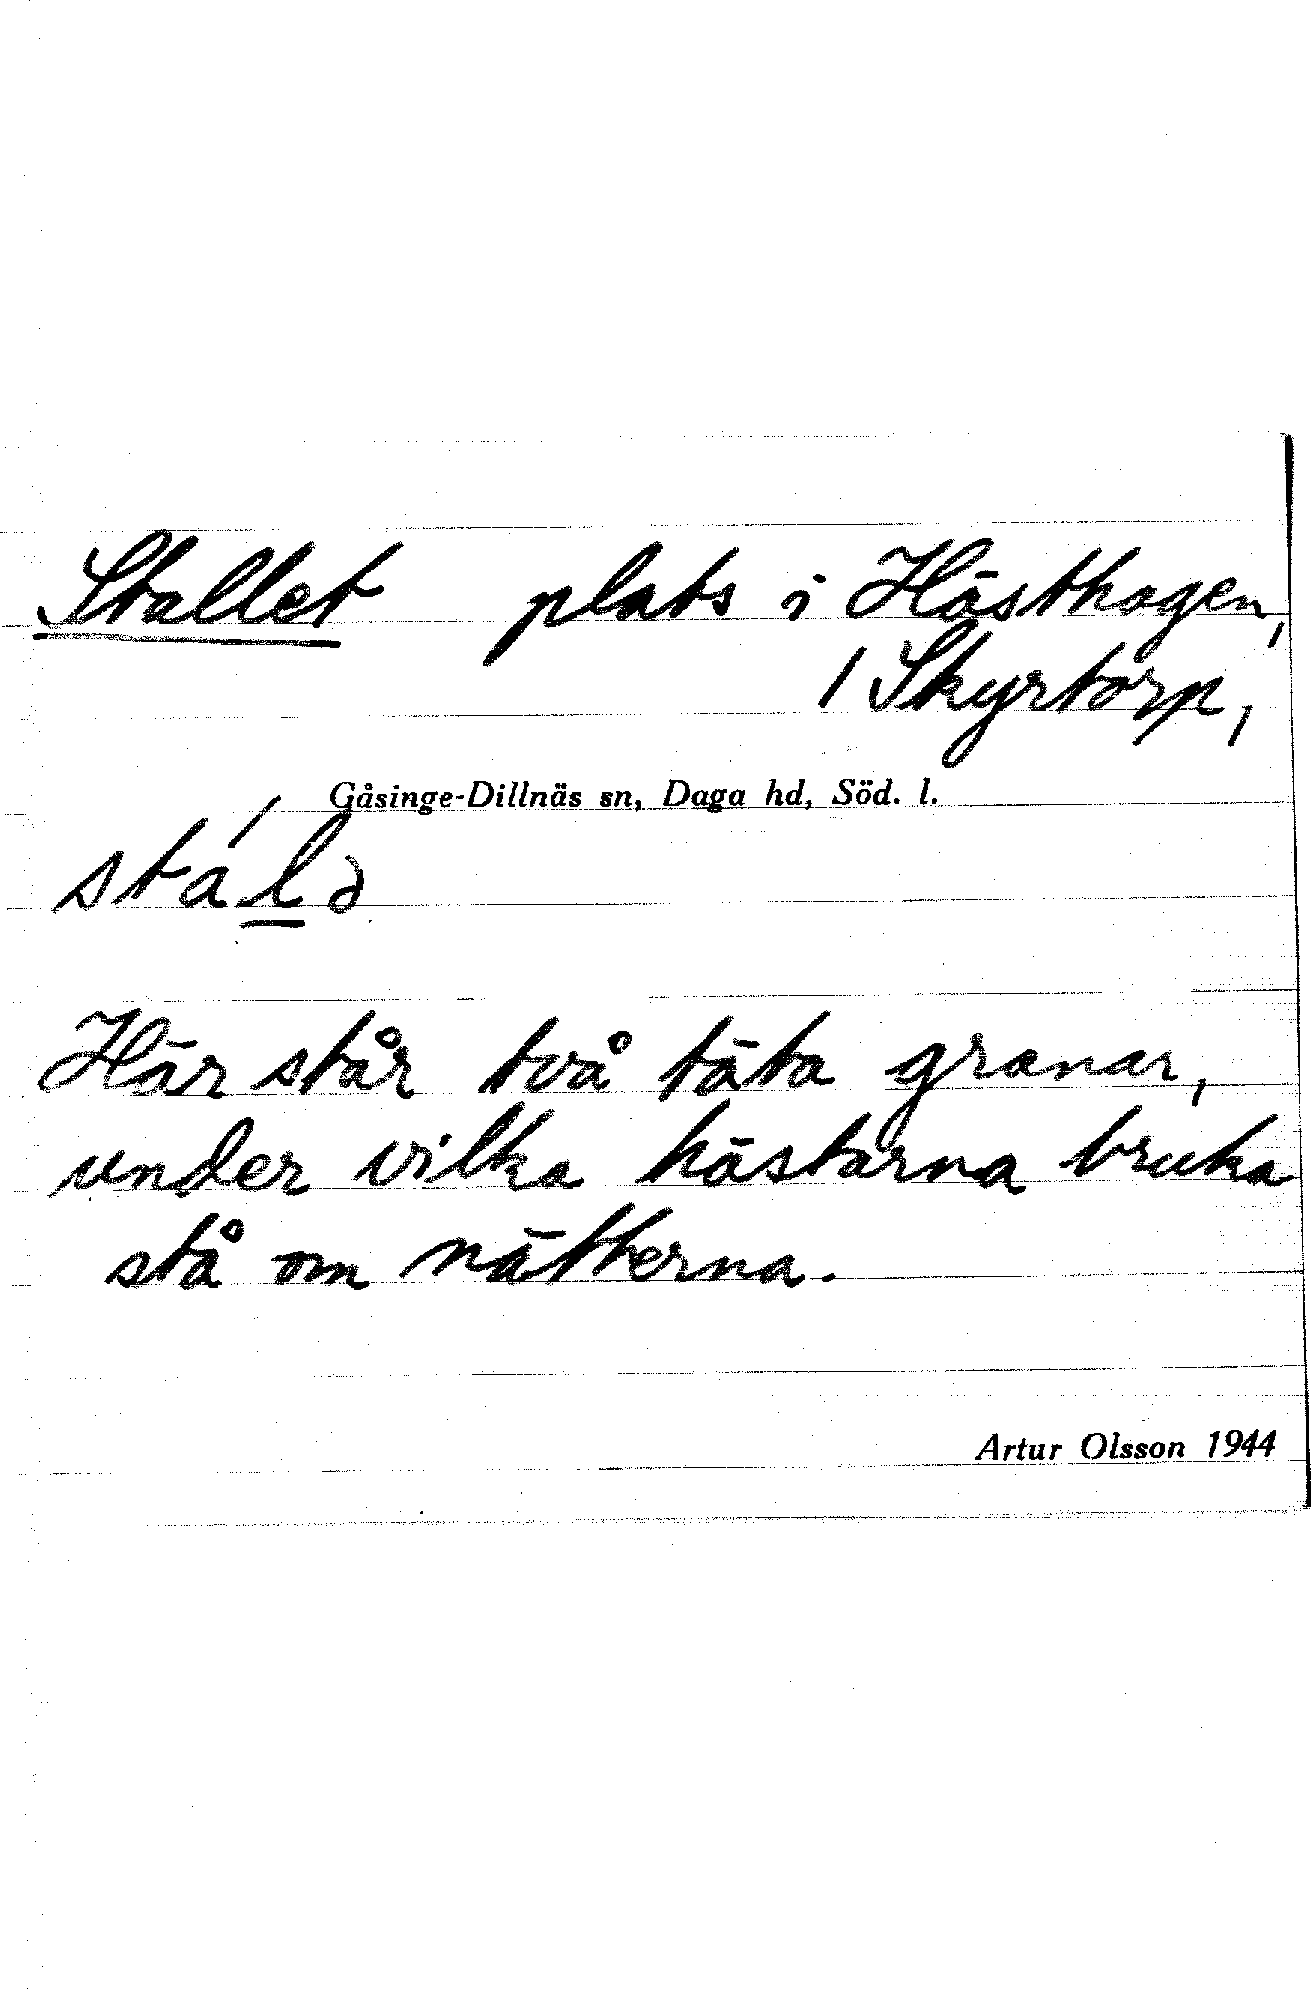 Stallet plats i Hästhagen,
1 Skyrtorp,
Gåsinge-Dillnäs sn, Daga hd, Söd. l.
stál̲ə
Här står två täta granar,
under vilka hästarna bruka
stå om nätterna.
Artur Olsson 1944